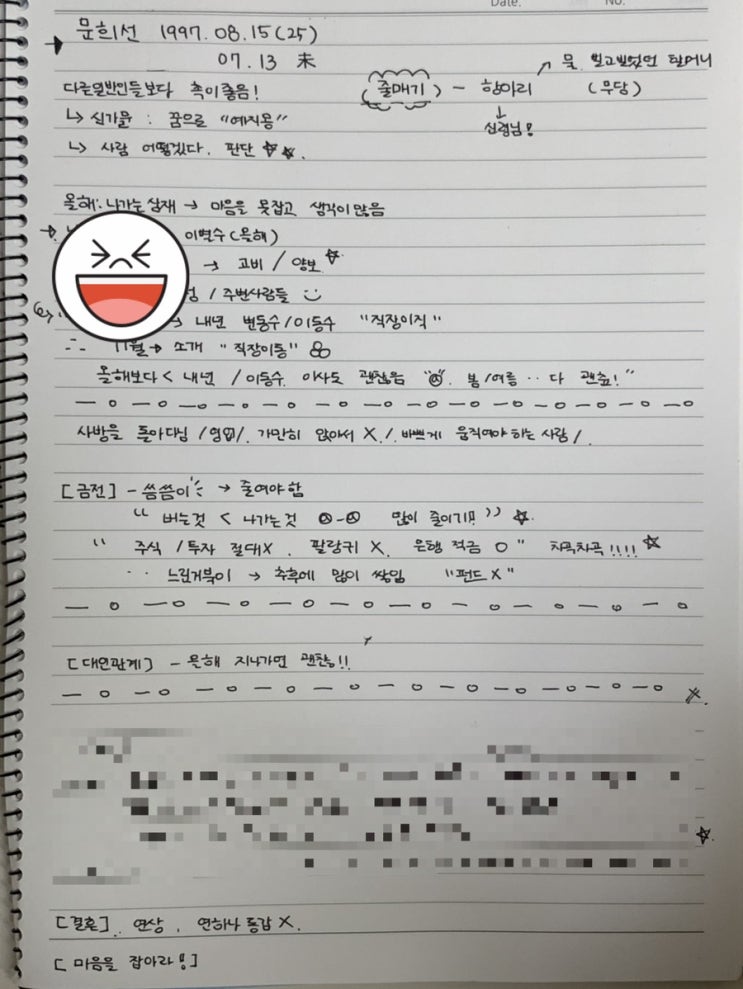 Date. No.
문희선 1997.08.15(25)
07.13 未
물 빌고빌었던 할머니
다른일반인들보다 촉이좋음! (줄매기) - 항아리 (무당)
↳ 신가물 : 꿈으로 "예지몽" 신령님!
↳ 사람 어떻겠다. 판단 ☆☆.
올해: 나가는삼재 → 마음을 못잡고 생각이많음
이별수(올해)
→ 고비 / 양보 ☆
/ 주변사람들
→ 내년 변동수/이동수 "직장이직"
11월→ 소개 "직장이동"
올해보다 < 내년 / 이동수. 이사도 괜찮음 봄/여름 ‥ 다 괜춘!"
사방을 돌아다님 / 가만히 앉아서 X / 바쁘게 움직여야하는 사람/.
[금전] - 씀씀이 → 줄여야함
"버는것 < 나가는것 많이 줄이기!!" ☆.
" 주식 / 투자 절대X. 팔랑귀 X. 은행 적금 O" 차곡차곡!!!! ☆
‥ 느린거북이 → 추후에 많이 쌓임 "펀드 X"
[대인관계] - 올해 지나가면 괜찮!!
[결혼]. 연상, 연하나 동갑 X.
[마음을 잡아라!]